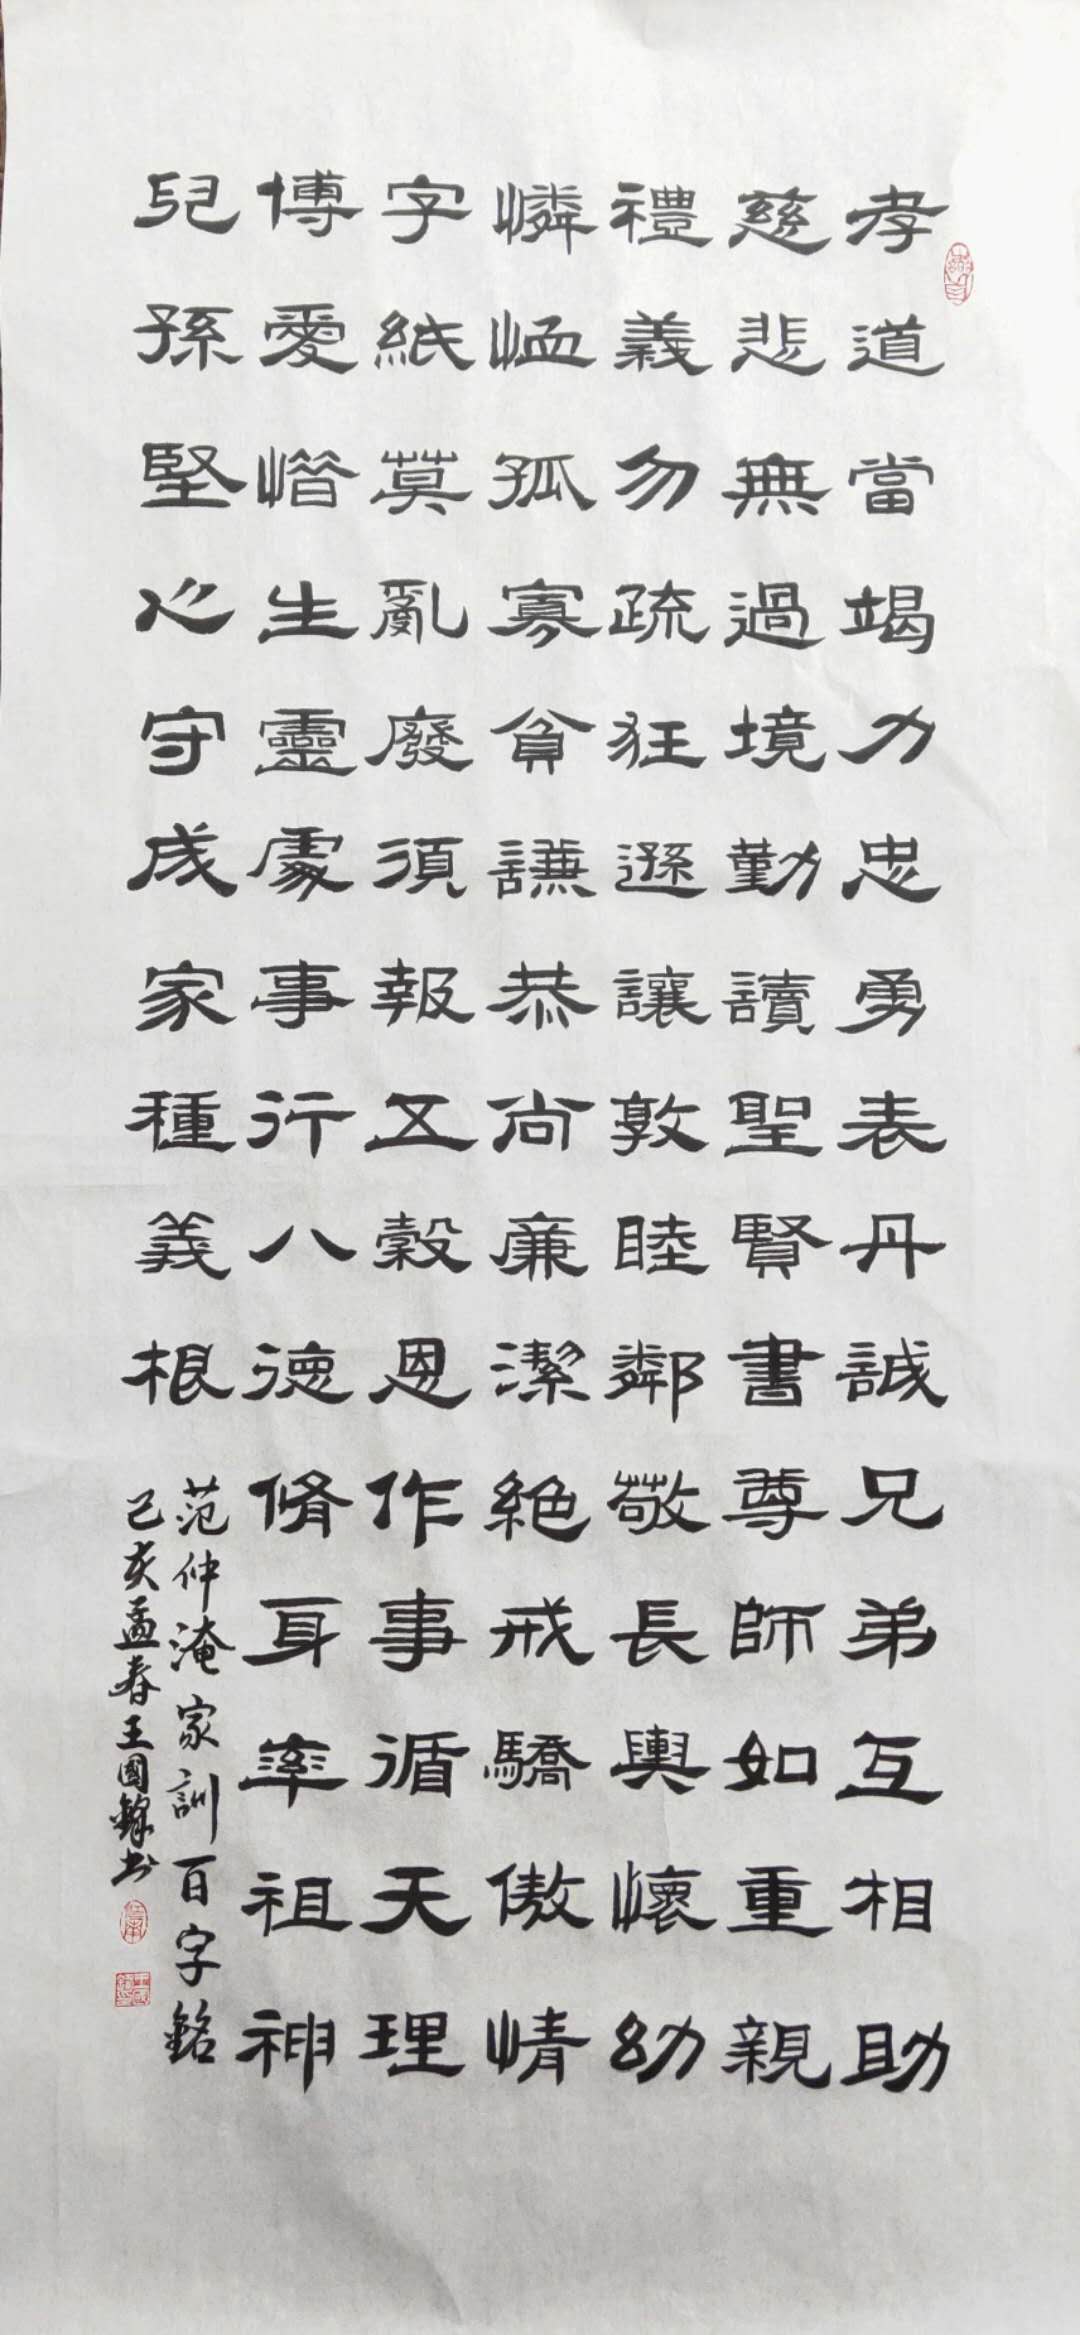 孝道當竭力忠勇表丹誠兄弟互相助
慈悲無過境勤讀聖賢書尊師如重親
禮義勿疏狂遜讓敦睦鄰敬長與懷幼
憐恤孤寡貧謙恭尚廉潔絕戒驕傲情
字紙莫亂廢須報五穀恩作事循天理
博愛惜生靈處事行八德脩身率祖神
兒孫堅心守成家種義根
范仲淹家訓百字銘
己亥孟春王國鋒书